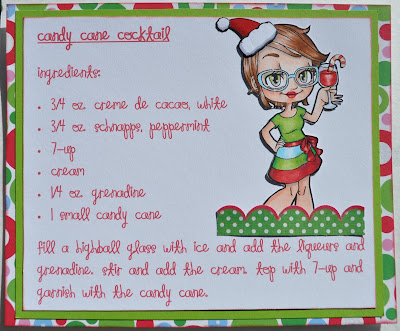 candy cane cocktail
ingredients:
• 3/4 oz. creme de cacao, white
• 3/4 oz. schnapps, peppermint
• 7-up
• cream
• 1/4 oz. grenadine
• 1 small candy cane
fill a highball glass with ice and add the liqueurs and
grenadine. stir and add the cream. top with 7-up and
garnish with the candy cane.